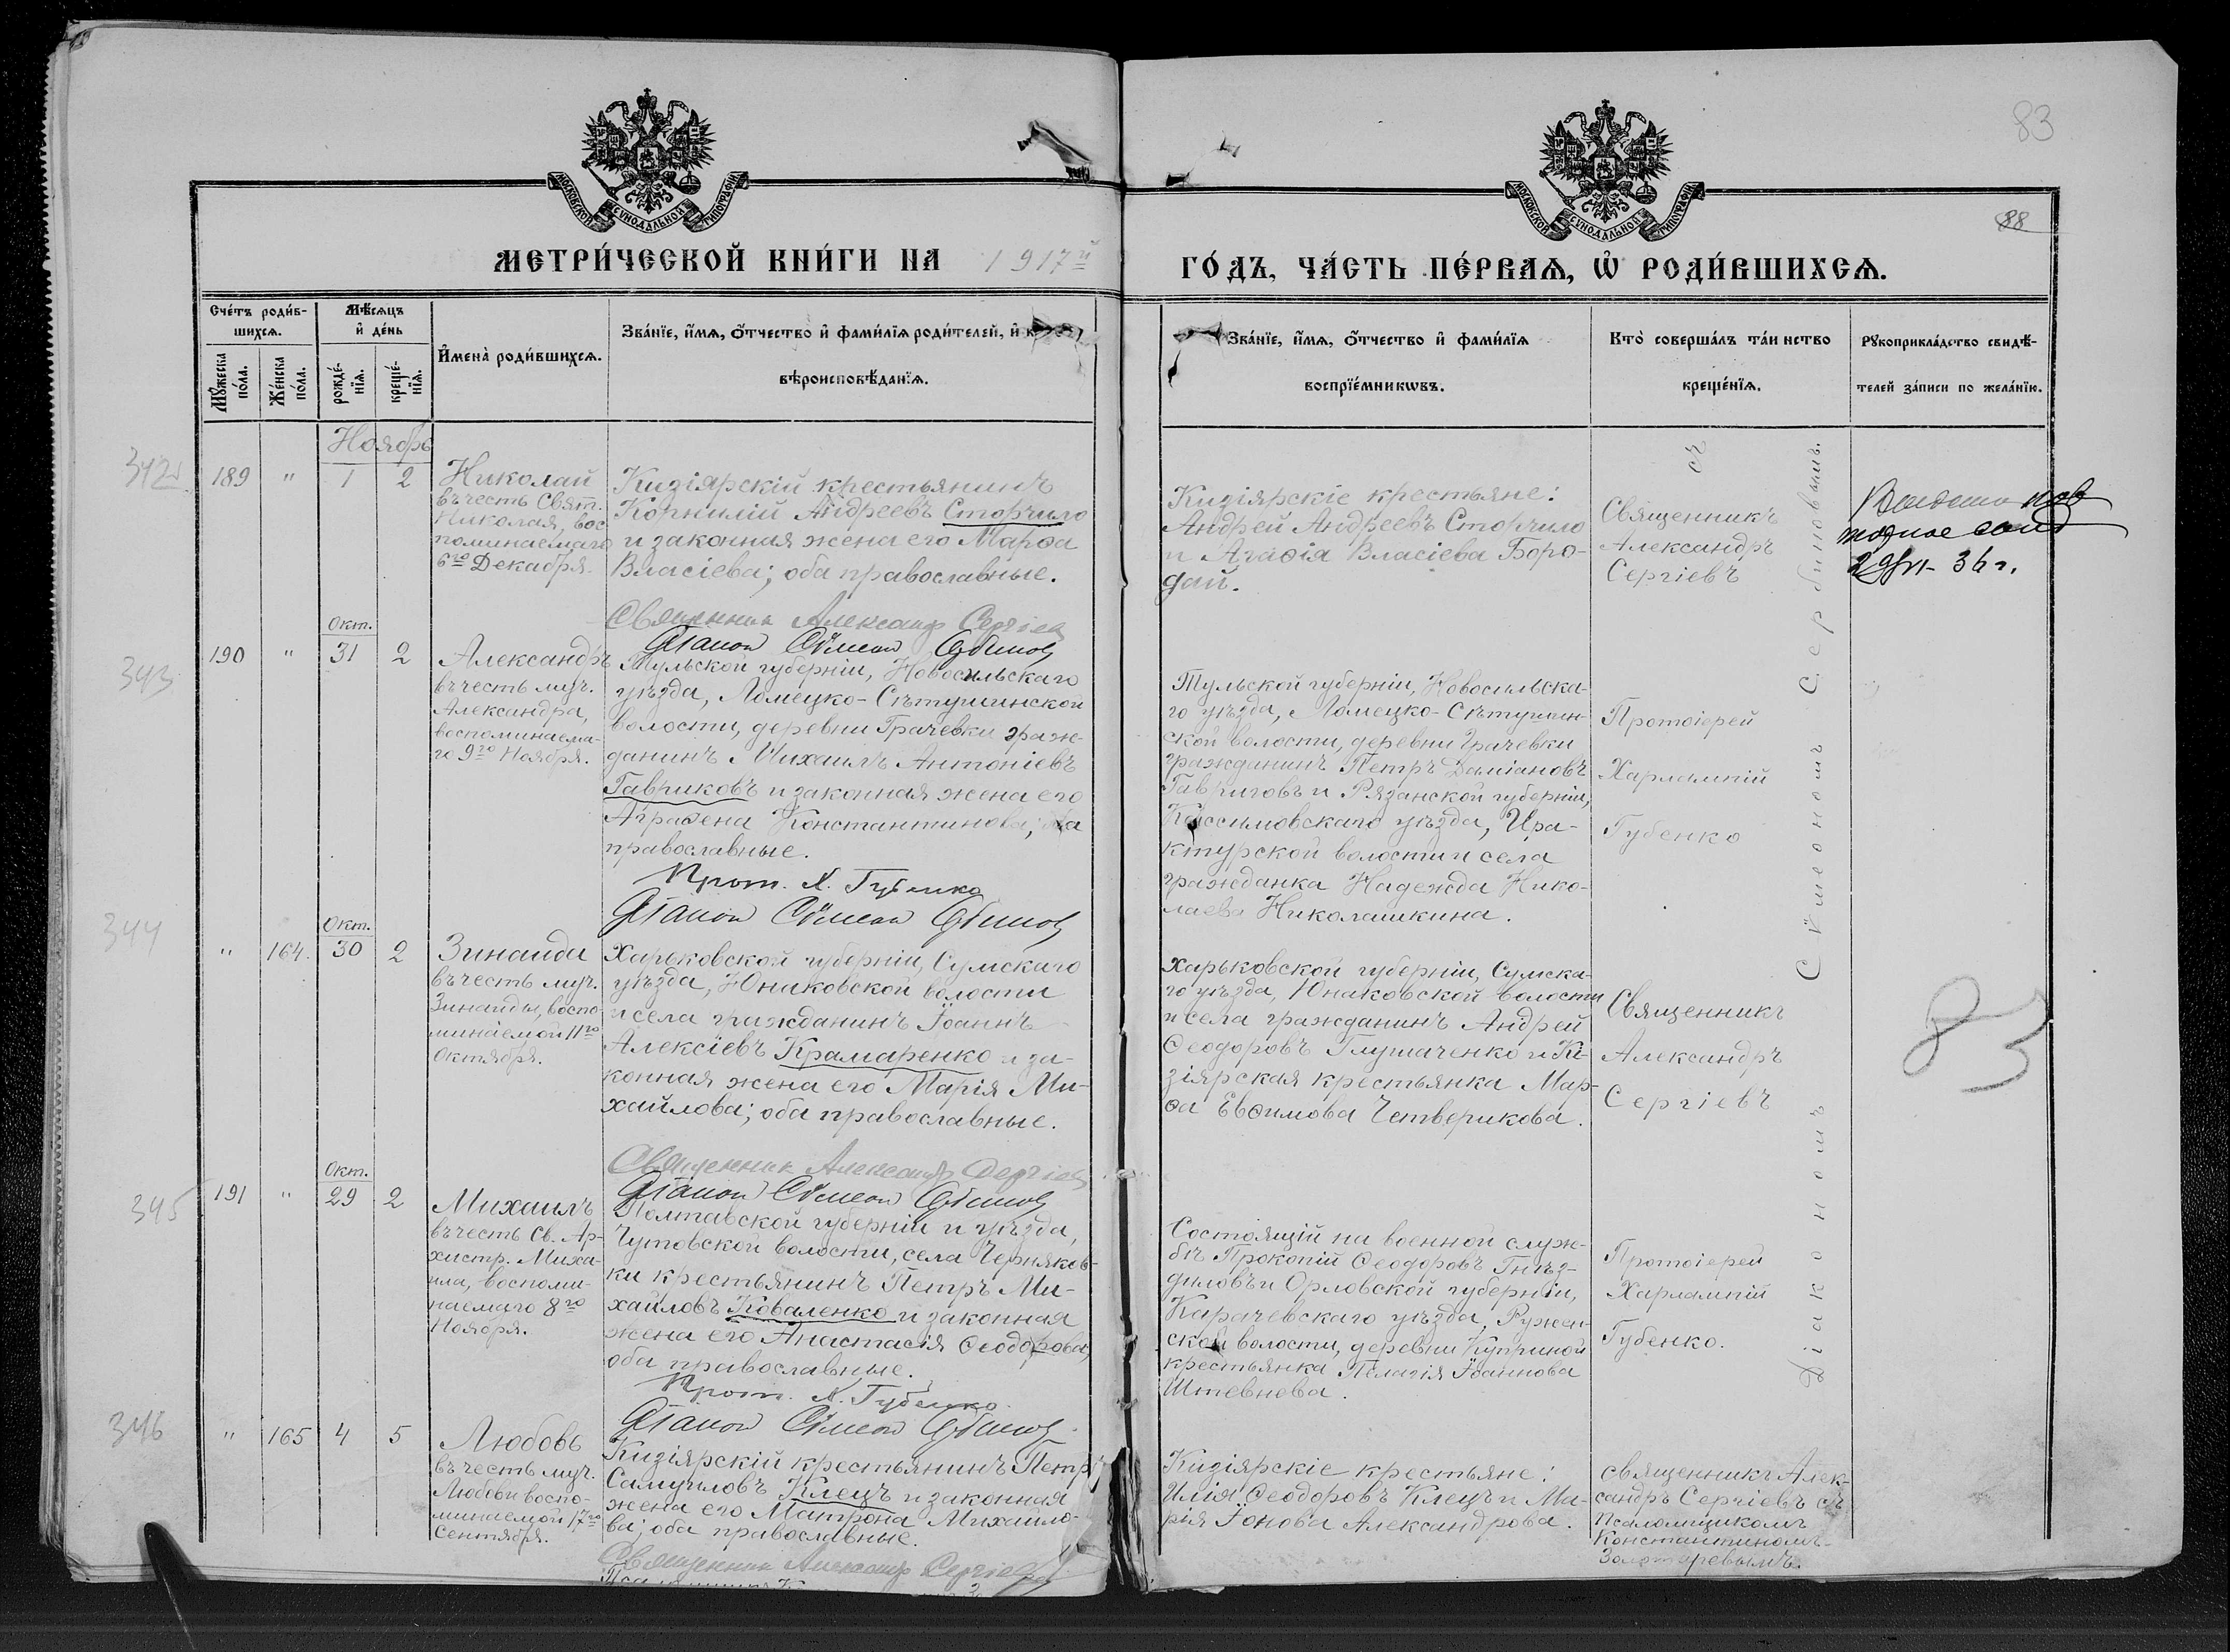 83
88
МОСКОВСКОЙ СѴНОДАЛЬНОЙ ТИПОГРАФІИ
МОСКОВСКОЙ СѴНОДАЛЬНОЙ ТИПОГРАФІИ
МЕТРИ́ЧЕСКОЙ КНИ́ГИ НА 1917й
ГО́ДЪ, ЧА́СТЬ ПЕ́РВАѦ, Ѡ҆ РОДИ́ВШИХСѦ.
Сче́тъ роди́в-
шихсѧ.
Мꙋ́жеска
по́ла.
Же́нска
по́ла.
Мѣ́сѧцъ
и҆ де́нь
рожде́-
нїѧ.
креще́-
нїѧ.
И҆мена̀ роди́вшихсѧ.
Зва́нїе, и҆́мѧ, о҆́тчество и҆ фами́лїѧ роди́телей, и҆
вѣроисповѣ́данїѧ.
Зва́нїе, и҆́мѧ, о҆́тчество и҆ фами́лїѧ
воспрїе́мникѡвъ.
Кто̀ соверша́лъ та́инство
креще́нїѧ.
Рꙋкоприкла́дство свидѣ́-
телей за́писи по жела́нїю.
Ноябрь
342
189 " 1 2
Николай
въ честь Свят.
Николая, вос
поминаемаго
6го Декабря.
Кизіярскій крестьянинъ
Корнилій Андреевъ Сторчило
и законная жена его Марѳа
Власіева; оба православные.
Священник Александр Сергіев
Діакон Сѵмеон
Кизіярскіе крестьяне:
Андрей Андреевъ Сторчило
и Агаѳія Власіева Боро-
дай.
Священникъ
Александръ
Сергіевъ
съ Діакономъ Сѵмеономъ Сербиновымъ.
36 г.
343
Окт.
190 " 31 2
Александръ
въ честь муч.
Александра,
воспоминаема-
го 9го Ноября.
Тульской губерніи, Новосильскаго
уѣзда, Ломецко-Сѣтушинской
волости, деревни Грачевки граж-
данинъ Михаилъ Антоніевъ
Гавриковъ и законная жена его
Аграѳена Константинова; оба
православные.
Прот. Х. Губенко
Діакон Сѵмеон
Тульской губерніи, Новосильска-
го уѣзда, Ломецко-Сѣтушин-
ской волости, деревни Грачевки
гражданинъ Петръ Даміановъ
Гавриговъ и Рязанской губерніи,
Кассимовскаго уѣзда, Ира-
ктурской волости и села
гражданка Надежда Нико-
лаева Николашкина.
Протоіерей
Харлампій
Губенко
344
Окт.
" 164. 30 2
Зинаида
въ честь муч.
Зинаиды, воспо-
минаемой 11го
Октября.
Харьковской губерніи, Сумскаго
уѣзда, Юнаковской волости
и села гражданинъ Іоаннъ
Алексіевъ Крамаренко и за-
конная жена его Марія Ми-
хайлова; оба православные.
Священник Александр Сергіев
Діакон Сѵмеон
Харьковской губерніи, Сумска-
го уѣзда, Юнаковской волости
и села гражданинъ Андрей
Ѳеодоровъ Глушаченко и Ки-
зіярская крестьянка Мар-
ѳа Евѳимова Четверикова.
Священникъ
Александръ
Сергіевъ
83
345
Окт.
191 " 29 2
Михаилъ
въ честь Св. Ар-
хистр. Миха-
ила, воспоми-
наемаго 8го
Ноября.
Полтавской губерніи и уѣзда,
Чутовской волости, села Черняков-
ки крестьянинъ Петръ Ми-
хайловъ Коваленко и законная
жена его Анастасія Ѳеодорова,
оба православные.
Прот. Х. Губенко.
Діакон Сѵмеон
Состоящій на военной служ-
бѣ Прокопій Ѳеодоровъ Гнѣз-
диловъ и Орловской губерніи,
Карачевскаго уѣзда, Ружен-
ской волости, деревни Куприной
крестьянка Пелагія Іоаннова
Штевнева.
Протоіерей
Харлампій
Губенко.
346
" 165 4 5
Любовь
въ честь муч.
Любови воспо-
минаемой 17го
Сентября.
Кизіярскій крестьянинъ Петръ
Самуиловъ Клецъ и законная
жена его Матрона Михайло-
ва; оба православные.
Священник Александр Сергіев
Кизіярскіе крестьяне:
Илія Ѳеодоровъ Клецъ и Ма-
рія Іонова Александрова.
Священникъ Алек-
сандръ Сергіевъ съ
Псаломщикомъ
Константиномъ
Золотаревымъ.